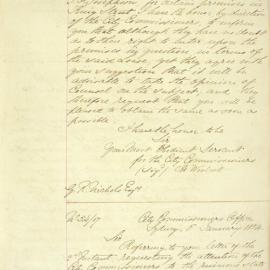 King Street, I have the honor by direction
of the City Commissioners to inform
you that although they have no doubt
as to their right to enter upon the
premises in question in terms of
the said Lease, yet they agree with
your suggestion that it will be
advisable to take the opinion of
Counsel on the subject, and they
therefore request that you will be
pleased to obtain the same as soon as
possible.
I have the honor to be
Sir
Your Most Obedient Servant
for the City Commissioners
G. R. Nichols Esqr
No 54/17
City Commissioners Office
Sydney, January 1854
Sir
Referring to your letter of the
Instant, requesting the attention of
the City Commissioners to the ruinous state